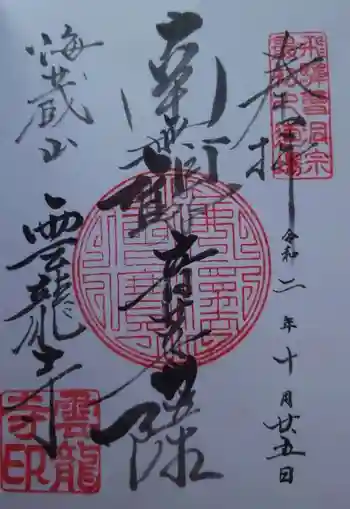 飛騨曹洞宗
奉拝
令和二年十月廿五日
南無観世音菩薩
海蔵山
雲龍寺
雲龍
寺印